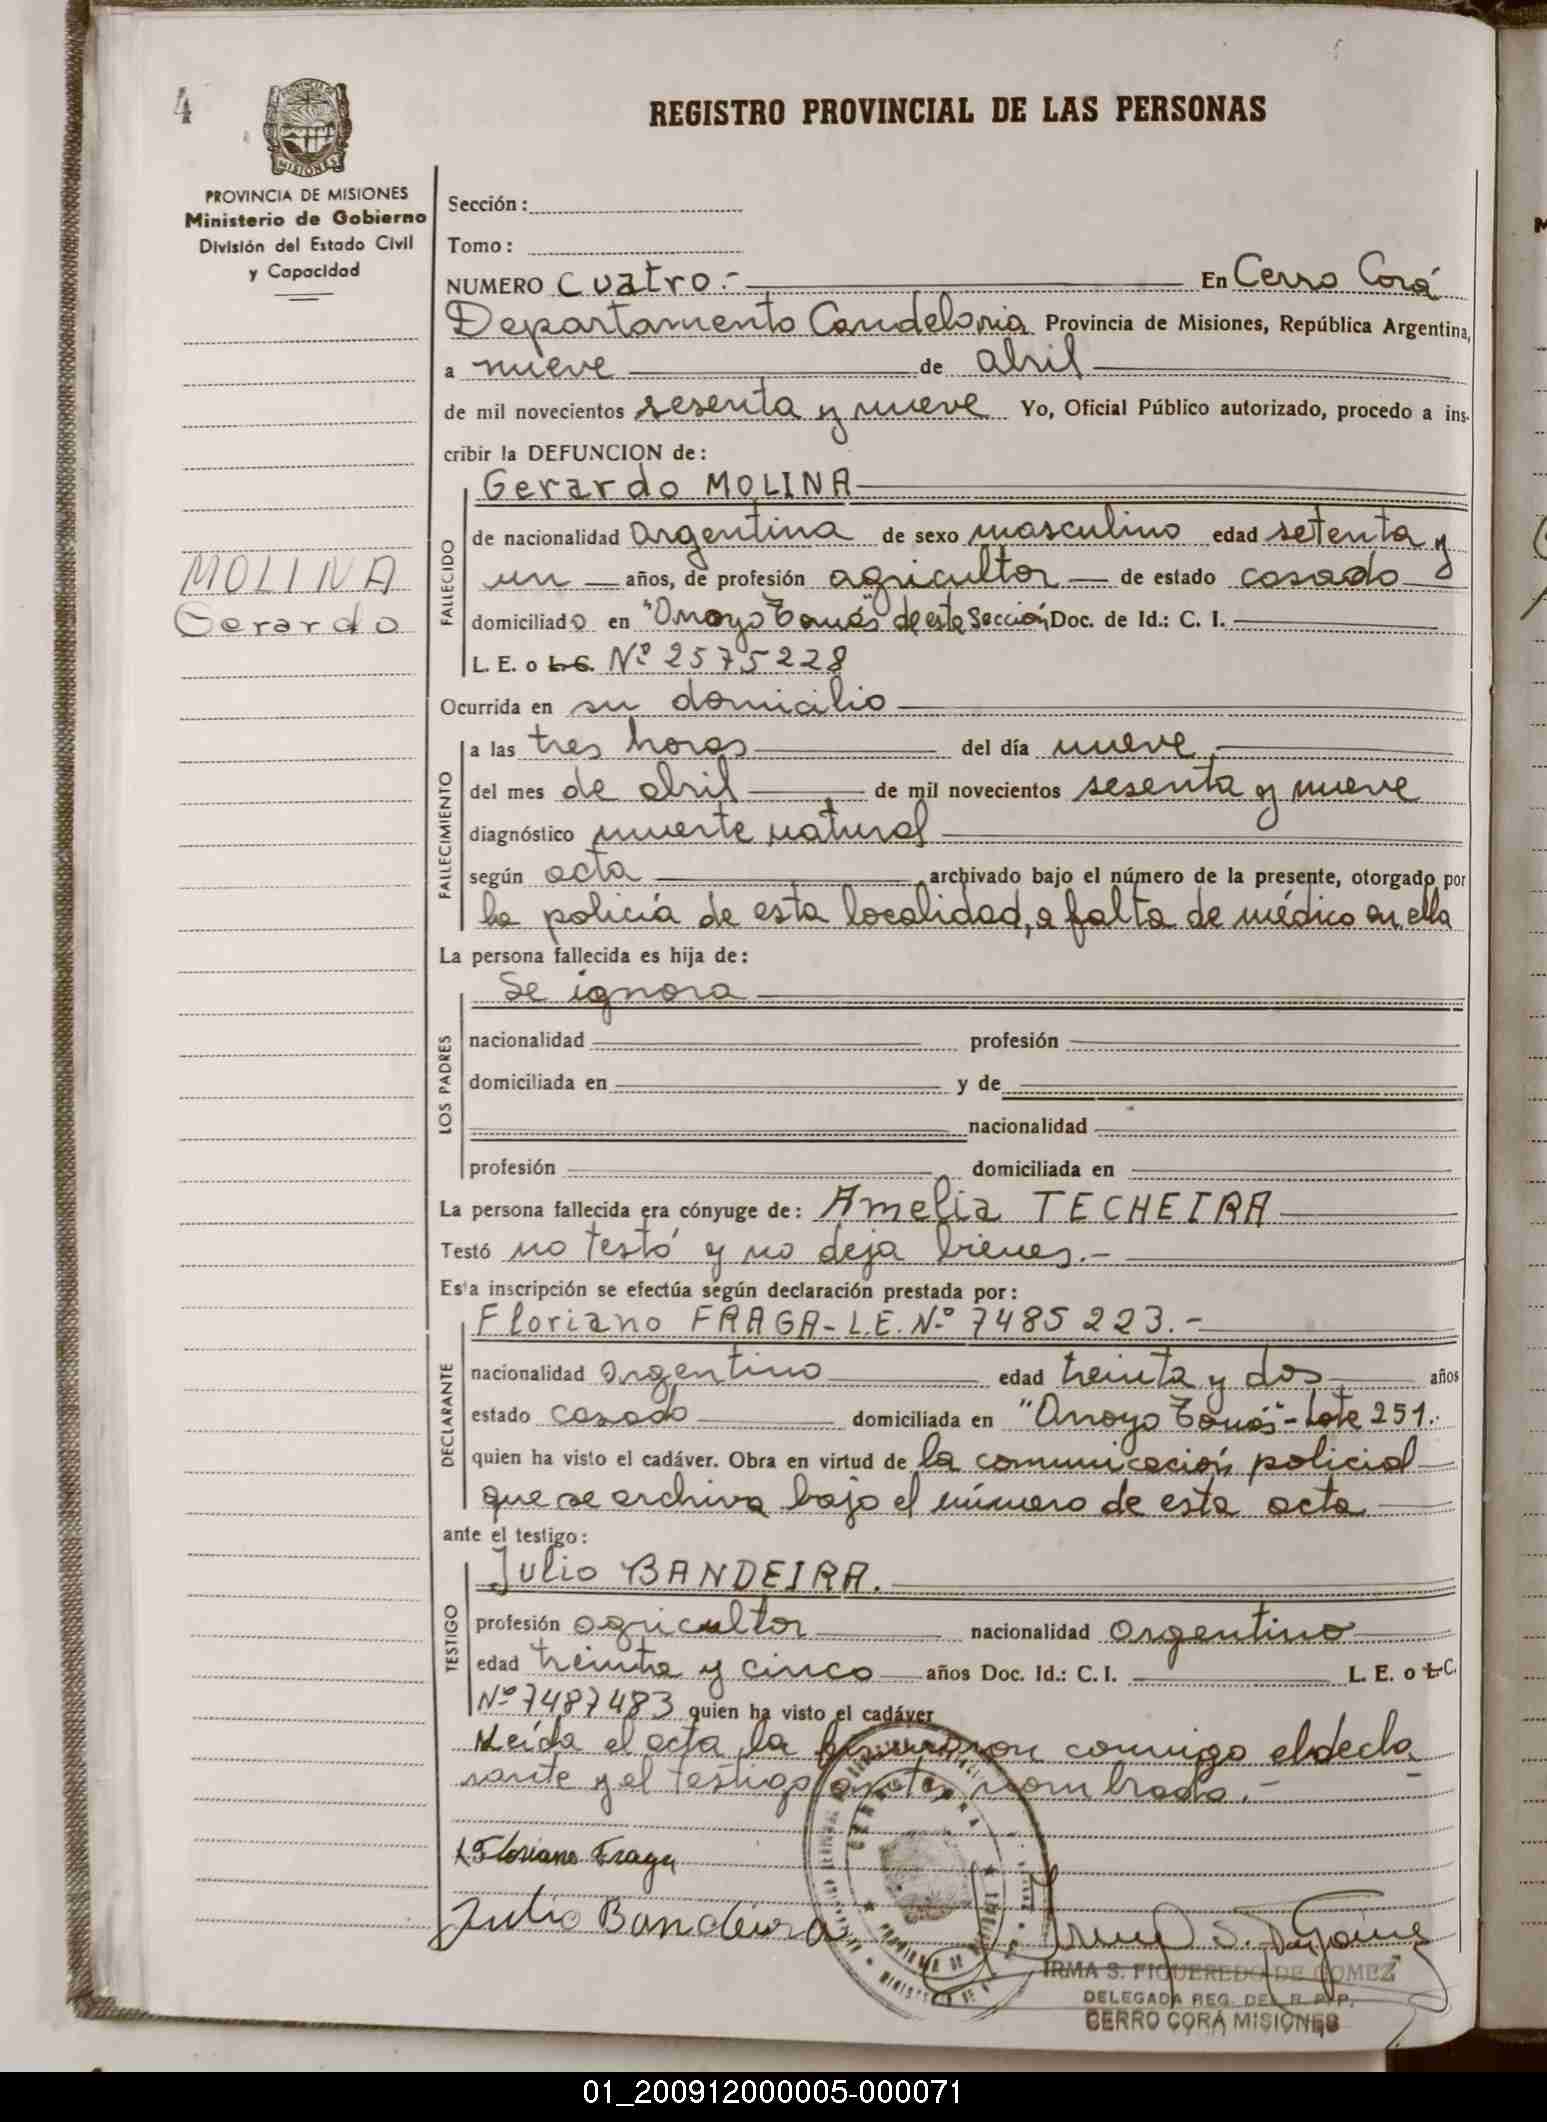 4
REGISTRO PROVINCIAL DE LAS PERSONAS
MISIONES
PROVINCIA DE MISIONES
Ministerio de Gobierno
División del Estado Civil
y Capacidad
Sección:
Tomo:
NUMERO Cuatro.- En Cerro Corá
Departamento Candelaria Provincia de Misiones, República Argentina,
a nueve de abril
de mil novecientos sesenta y nueve Yo, Oficial Público autorizado, procedo a ins-
cribir la DEFUNCION de:
Gerardo MOLINA
MOLINA
Gerardo
FALLECIDO
de nacionalidad Argentina de sexo masculino edad setenta y
un años, de profesión agricultor de estado casado
domiciliado en "Arroyo Tomás" de esta Sección Doc. de Id.: C. I.
L. E. o L.C. Nº 2575228
Ocurrida en su domicilio
FALLECIMIENTO
a las tres horas del día nueve
del mes de abril de mil novecientos sesenta y nueve
diagnóstico muerte natural
según acta archivado bajo el número de la presente, otorgado por
la policía de esta localidad, a falta de médico en ella
La persona fallecida es hija de:
LOS PADRES
Se ignora
nacionalidad profesión
domiciliada en y de
nacionalidad
profesión domiciliada en
La persona fallecida era cónyuge de: Amelia TECHEIRA
Testó no testó y no deja bienes.-
Esta inscripción se efectúa según declaración prestada por:
DECLARANTE
Floriano FRAGA - L.E. Nº 7485223.-
nacionalidad argentino edad treinta y dos años
estado casado domiciliada en "Arroyo Tomás" - Lote 251.
quien ha visto el cadáver. Obra en virtud de la comunicación policial
que se archiva bajo el número de esta acta
ante el testigo:
TESTIGO
Julio BANDEIRA.
profesión agricultor nacionalidad argentino
edad treinta y cinco años Doc. Id.: C. I. L. E. o L.C.
Nº 7487483 quien ha visto el cadáver
Leída el acta, la firmaron conmigo el decla
rante y el testigo antes nombrado.-
Floriano Fraga
Julio Bandeira
IRMA S. FIGUEREDO DE GOMEZ
DELEGADA REG. DEL R. P. P.
CERRO CORÁ MISIONES
01_200912000005-000071